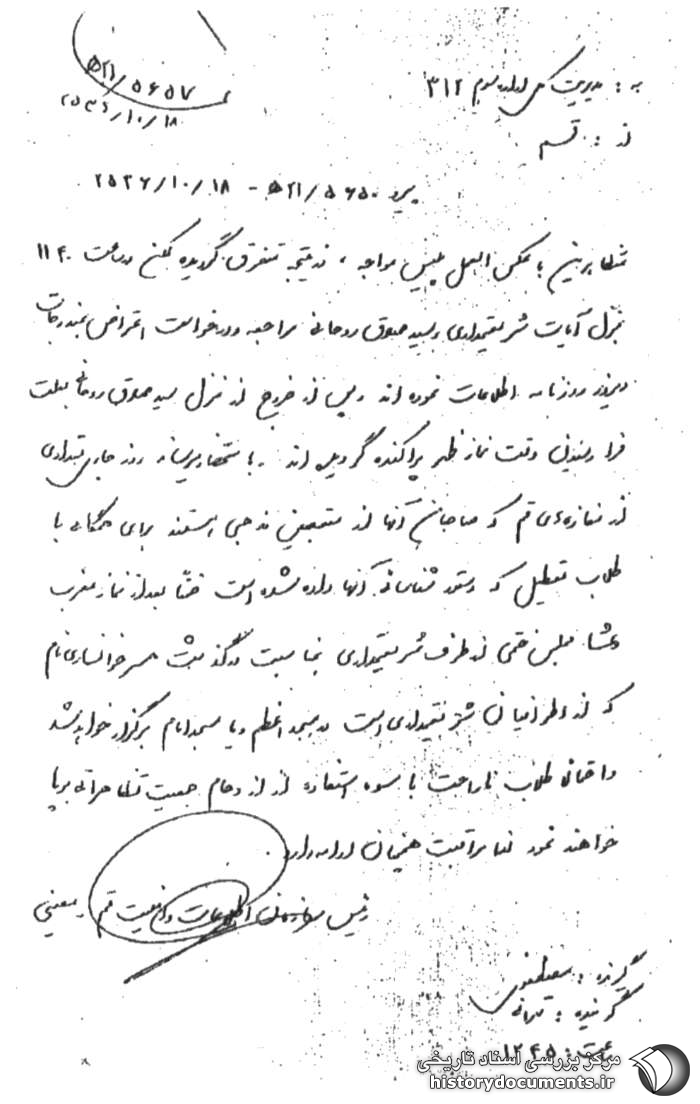 ۵۲۱/۵۶۵۷
۲۵۳۶/۱۰/۱۸
به : مدیریت کل اداره سوم ۳۱۲
از : قم
پیرو ۵۲۱/۵۶۵۰ - ۲۵۳۶/۱۰/۱۸
تظاهرین با عکس العمل پلیس مواجه ، در نتیجه متفرق گردیده لکن در ساعت ۱۱۴۰
بمنزل آیات شریعتمداری و سید صادق روحانی مراجعه و درخواست اعتراض بمندرجات
دیروز روزنامه اطلاعات نموده اند و پس از خروج از منزل سید صادق روحانی بعلت
فرا رسیدن وقت نماز ظهر پراکنده گردیده اند . باستحضار میرساند روز جاری تعدادی
از مغازه‌های قم که صاحبان آنها از متعصبین مذهبی هستند برای همگامی با
طلاب تعطیل که دستور شناسائی آنها داده شده است ضمناً بعد از نماز مغرب
و عشا مجلس ختمی از طرف شریعتمداری بمناسبت درگذشت همسر خوانساری نام
که از اطرافیان شریعتمداری است در مسجد اعظم و یا مسجد امام برگزار خواهد شد
و احتمالاً طلاب ناراحت با سوء استفاده از ازدحام جمعیت تظاهراتی برپا
خواهند نمود لذا مراقبت همچنان ادامه دارد .
رئیس سازمان اطلاعات و امنیت قم . معینی
گیرنده :
گوینده : تهرانی
ساعت : ۱۲۴۵
مرکز بررسی اسناد تاریخی
historydocuments.ir